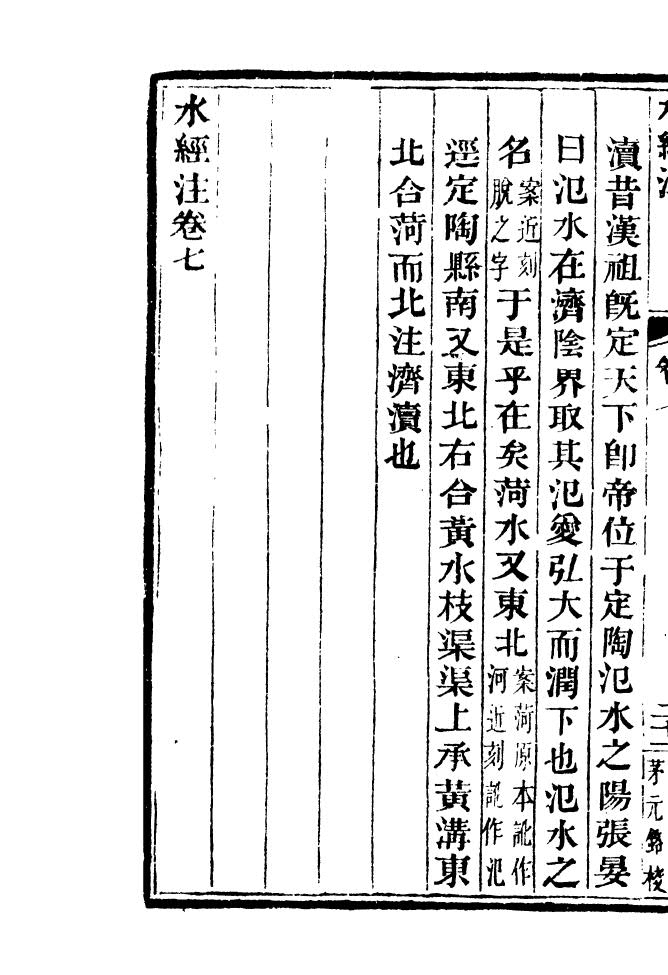 瀆昔漢祖旣定天下卽帝位于定陶汜水之陽張晏
曰汜水在濟陰界取其汜愛弘大而潤下也汜水之
名案近刻脫之字于是乎在矣菏水又東北案菏原本訛作河近刻訛作汜
逕定陶縣南又東北右合黃水枝渠渠上承黃溝東
北合菏而北注濟瀆也
水經注卷七